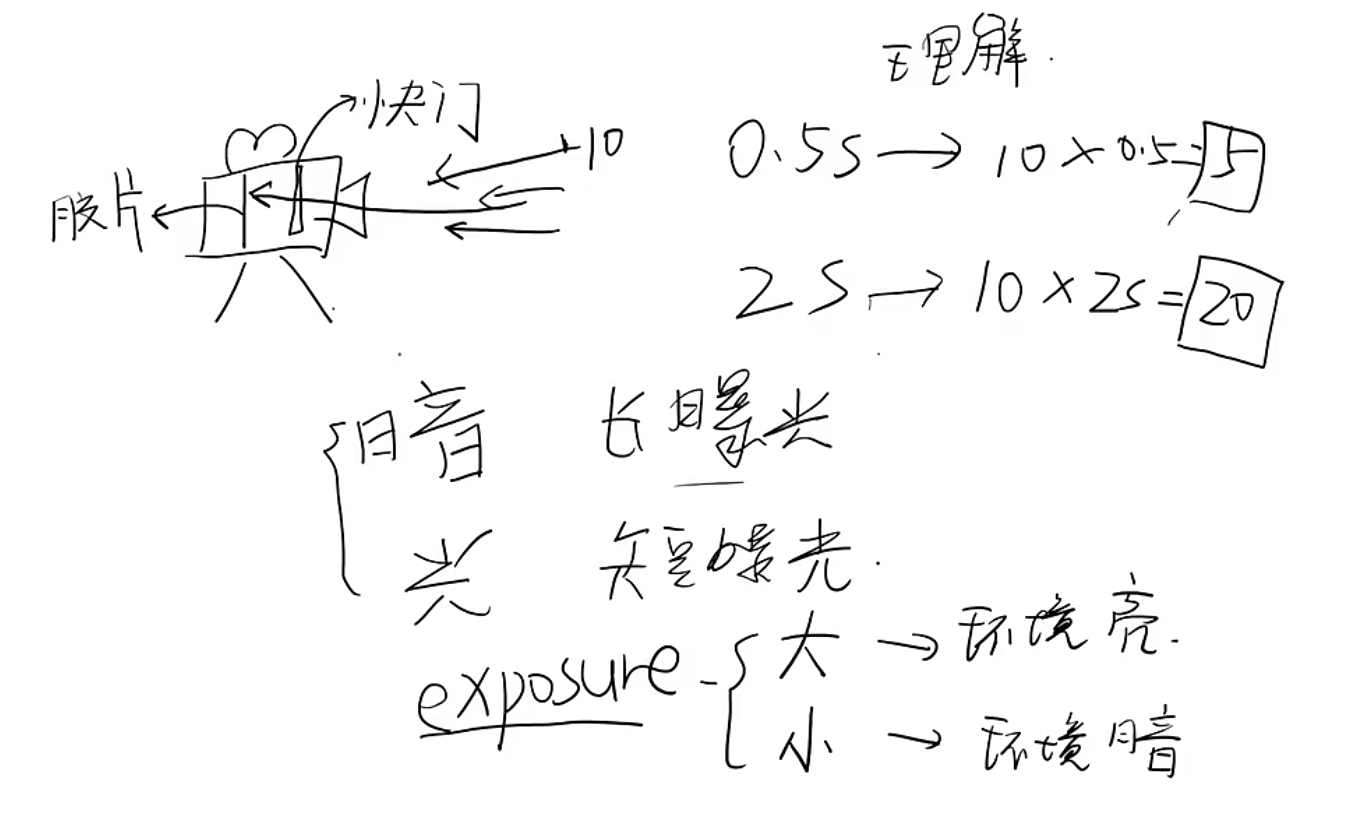 理解.
快门
10
0.5s → 10 × 0.5 = 5
胶片
2s → 10 × 2s = 20
暗 长曝光
光 短曝光.
exposure - { 大 → 环境亮.
小 → 环境暗